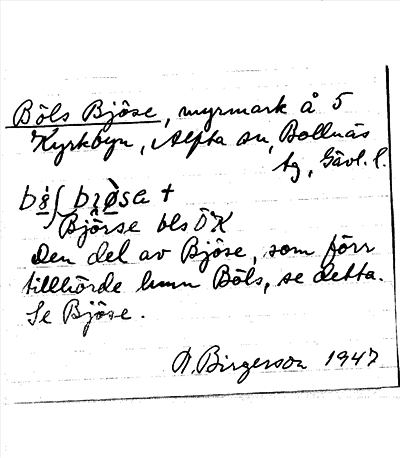 Böls Bjöse, myrmark å 5
Kyrkbyn, Alfta sn, Bollnäs
tg, Gävl. l.
Björse bls ÖK
Den del av Bjöse, som förr
tillhörde hmn Böls, se detta.
Se Bjöse.
D. Birgerson 1947